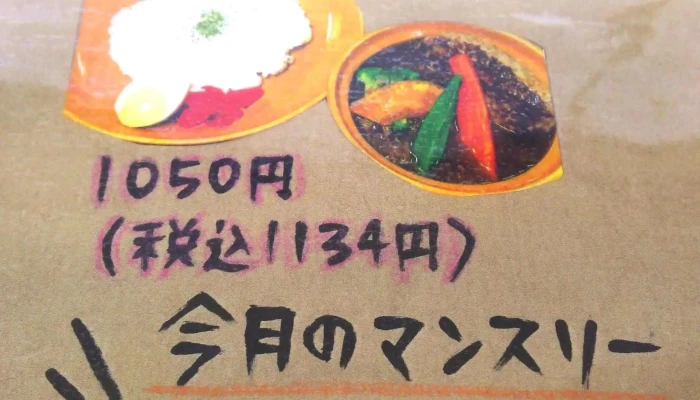 1050円
(税込1134円)
今月のマンスリー